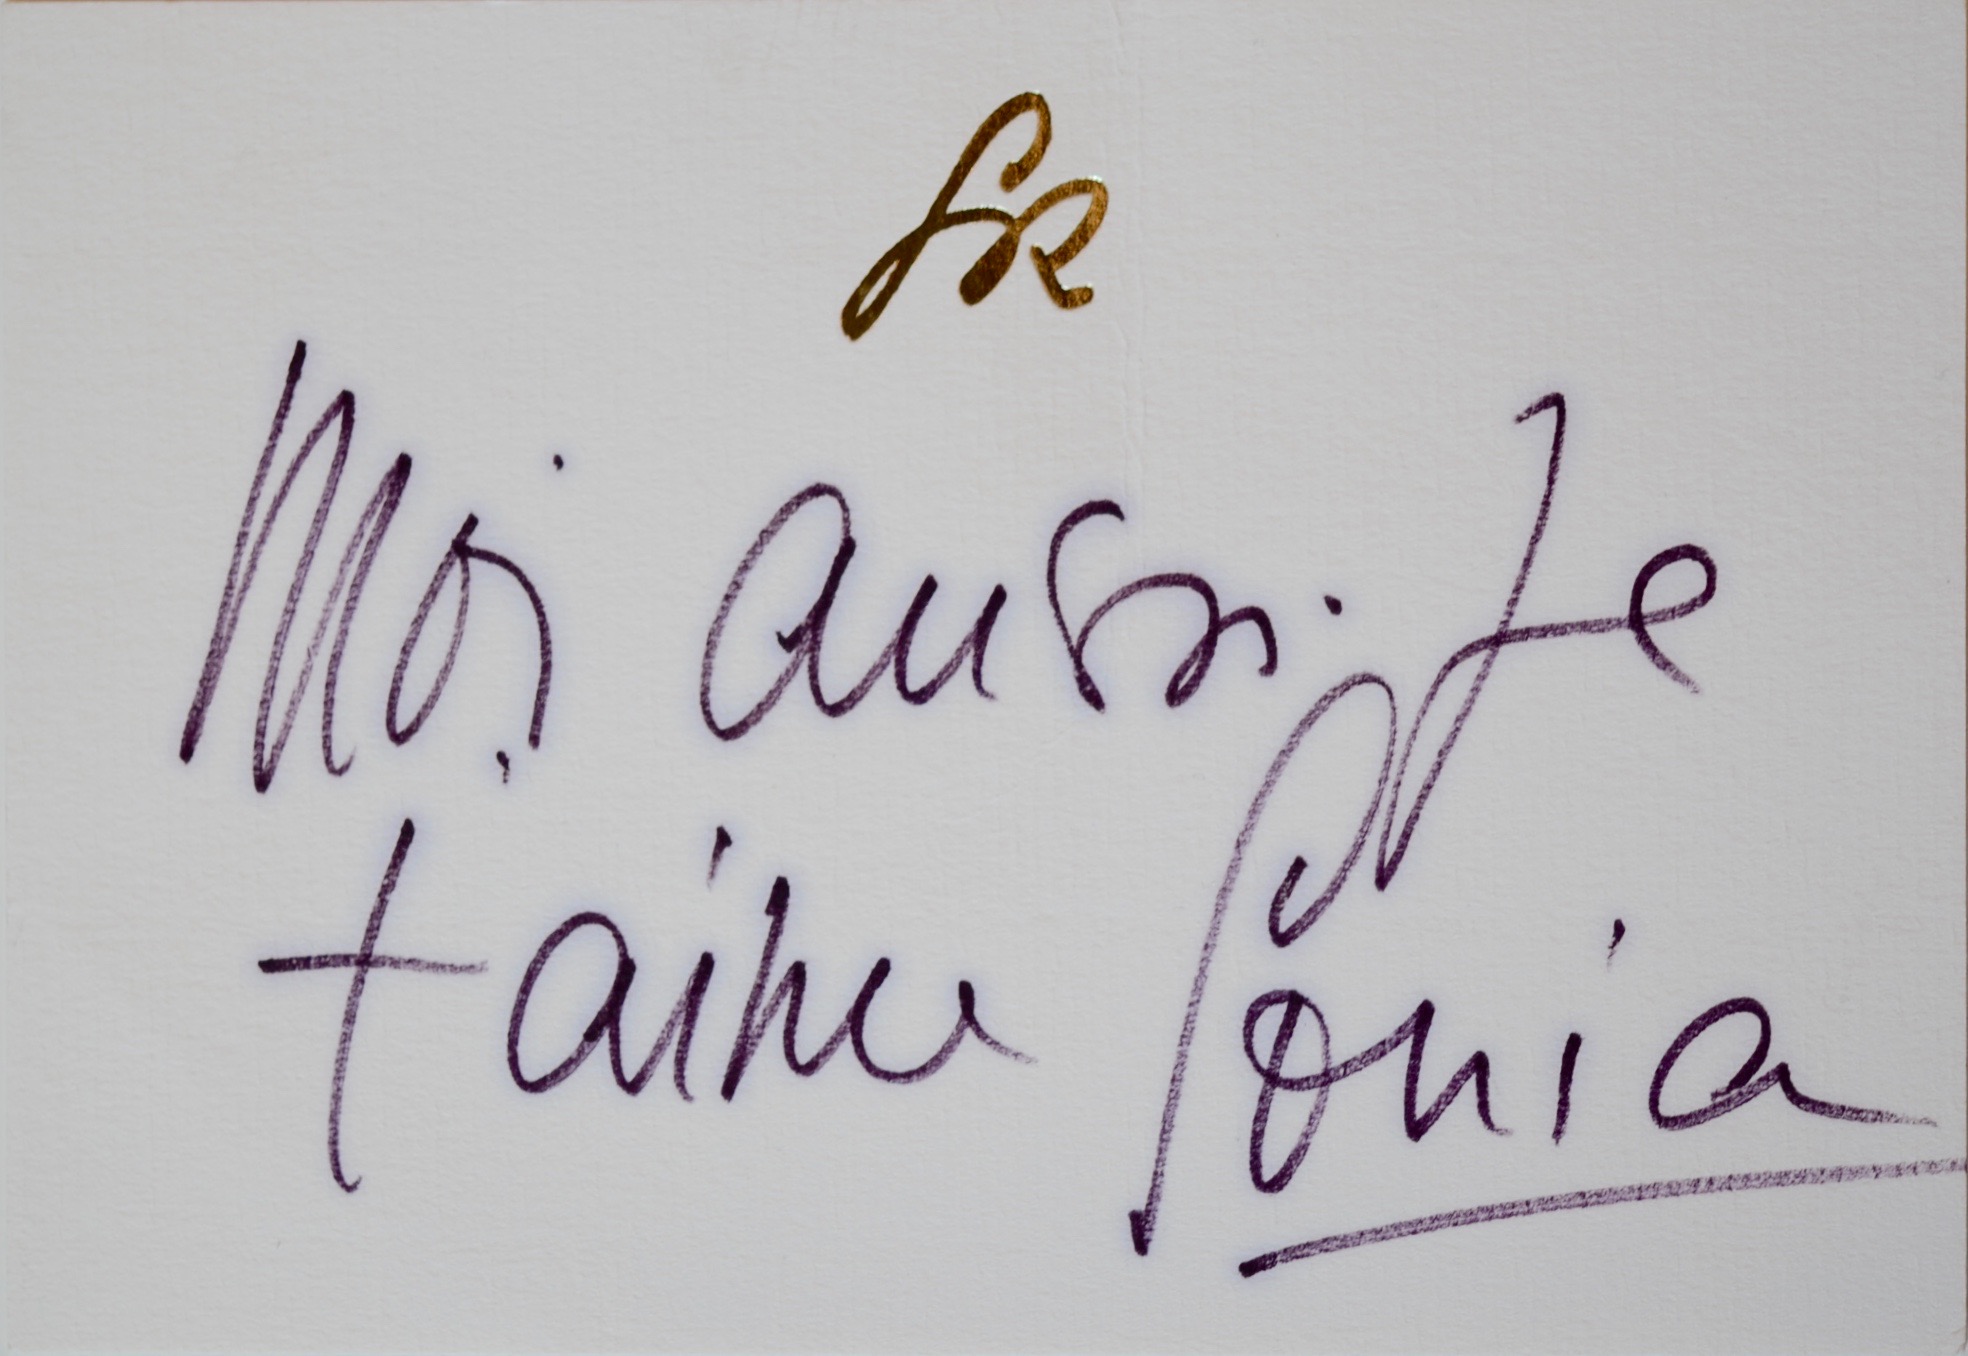 SR
Moi aussi je
t aime Sonia